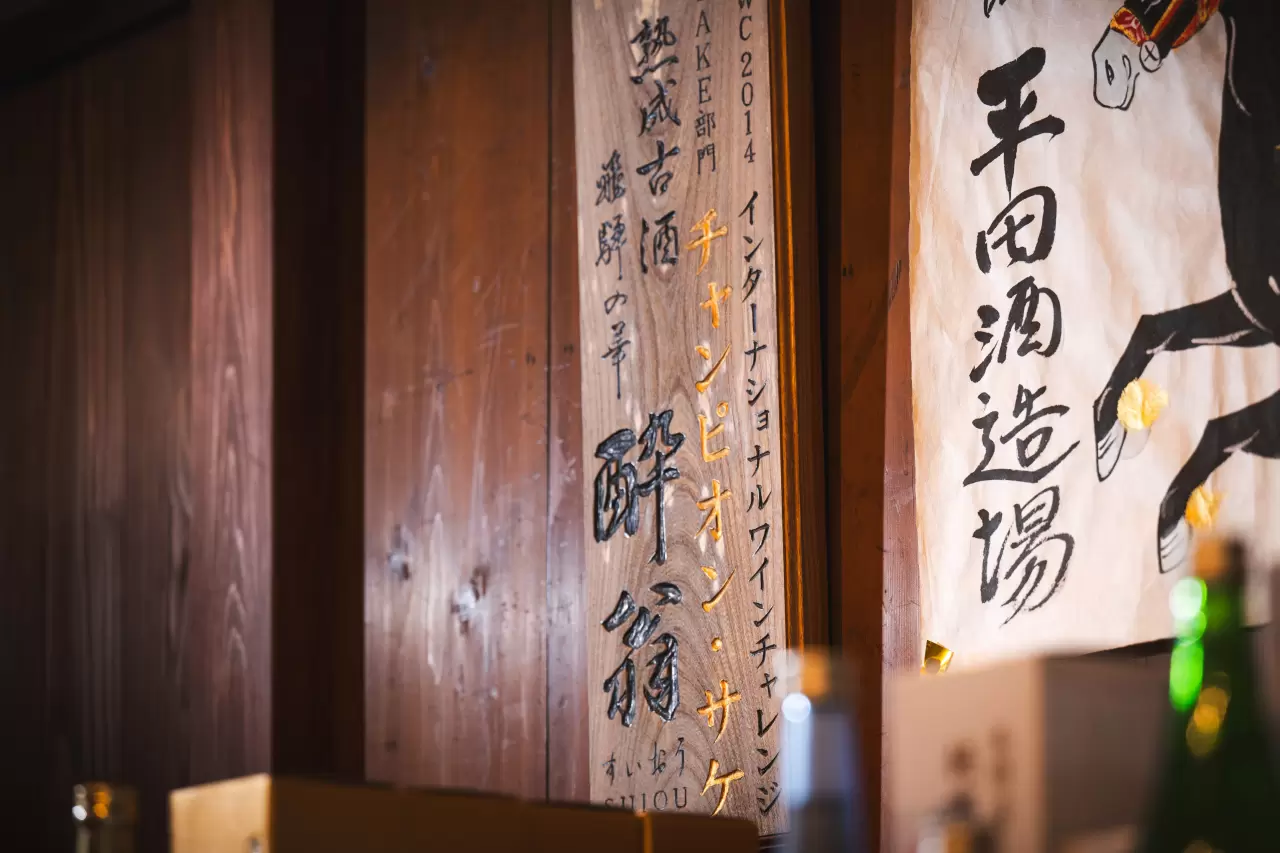 平田酒造場
WC 2014 インターナショナルワインチャレンジ
AKE部門 チャンピオン・サケ
熟成古酒
飛騨の華 酔翁
すいおう
SUIOU